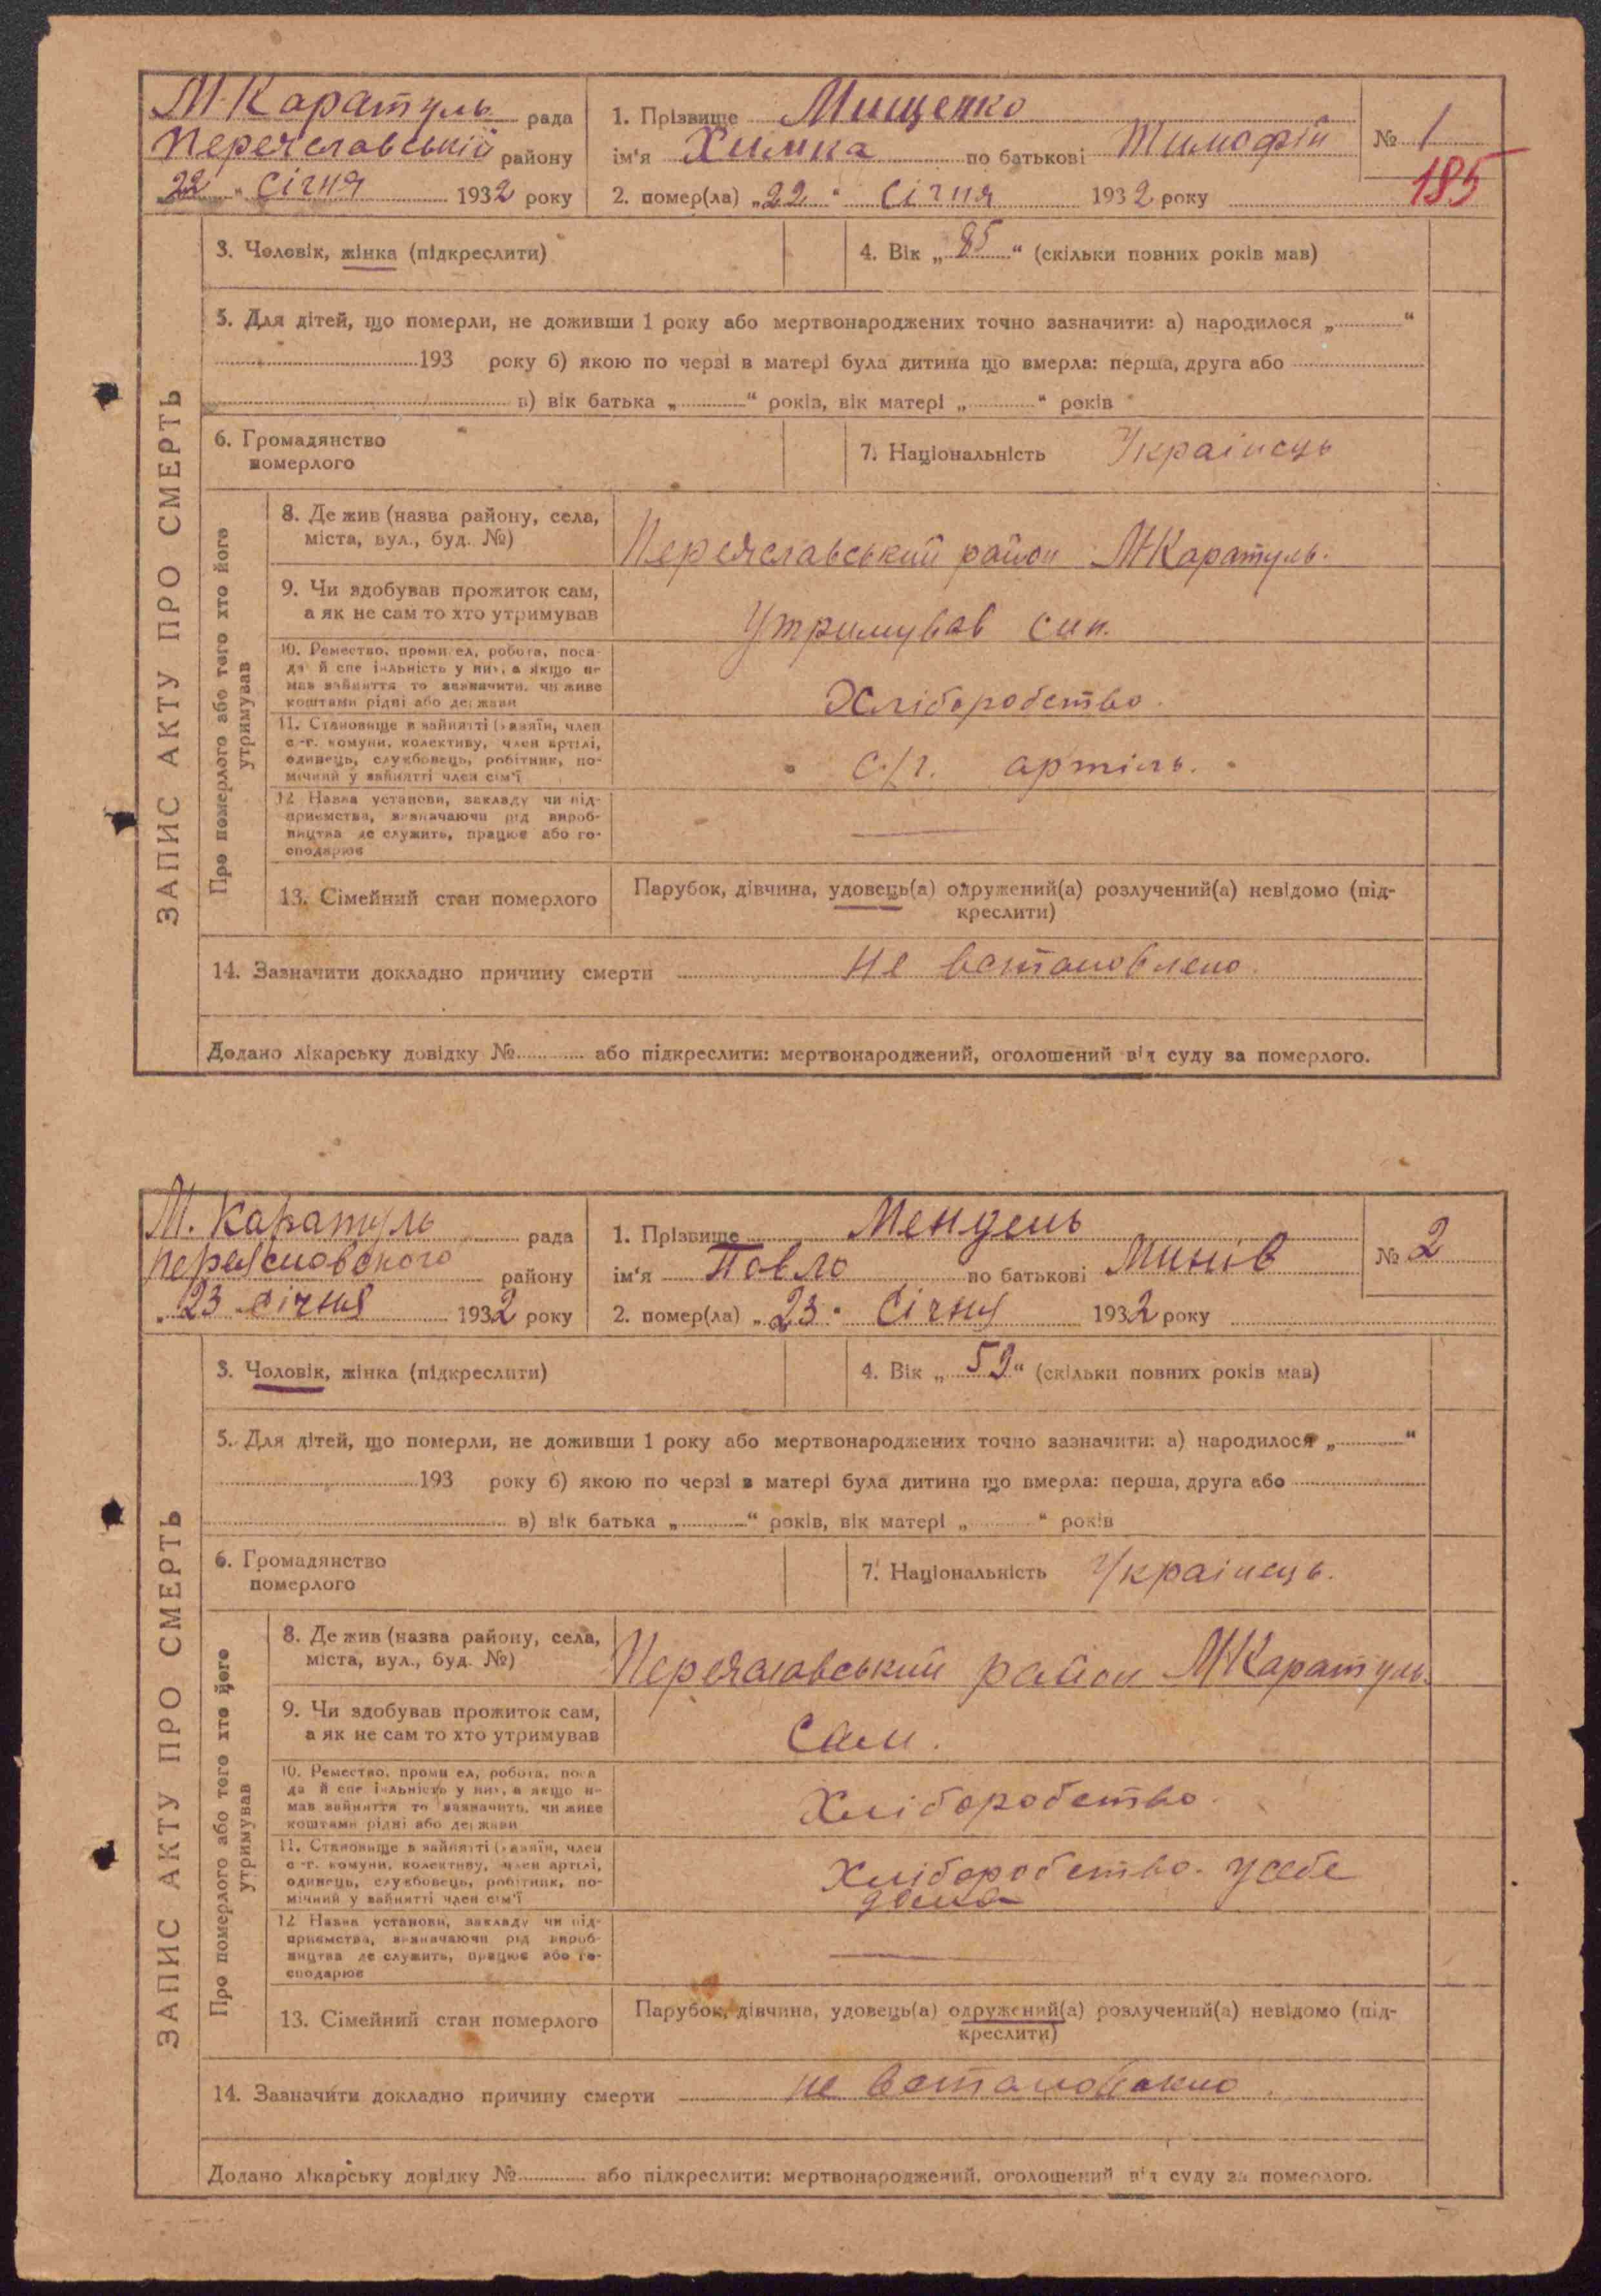 М-Каратуль рада
Переяславський району
22 " січня 1932 року
1. Прізвище Мищенко
ім'я Химка по батькові Тимофій
2. помер(ла) „22" січня 1932 року
№ 1
185
ЗАПИС АКТУ ПРО СМЕРТЬ
3. Чоловік, жінка (підкреслити)
4. Вік „85" (скільки повних років мав)
5. Для дітей, що померли, не доживши 1 року або мертвонароджених точно зазначити: а) народилося „ "
193 року б) якою по черзі в матері була дитина що вмерла: перша, друга або
в) вік батька „ " років, вік матері „ " років
6. Громадянство
померлого
7. Національність Українець
Про померлого або того хто його
утримував
8. Де жив (назва району, села,
міста, вул., буд. №)
Переяславський район М-Каратуль.
9. Чи здобував прожиток сам,
а як не сам то хто утримував
Утримував син.
10. Ремество, промисел, робота, поса-
да й спеціяльність у них, а якщо не
мав зайняття то зазначити, чи живе
коштами рідні або держави
Хліборобство.
11. Становище в зайнятті (хазяїн, член
с.-г. комуни, колективу, член артілі,
одинець, службовець, робітник, по-
мічний у зайнятті член сім'ї
с/г. артіль.
12 Назва установи, закладу чи під-
приємства, зазначаючи рід вироб-
ництва де служить, працює або го-
сподарює
13. Сімейний стан померлого
Парубок, дівчина, удовець(а) одружений(а) розлучений(а) невідомо (під-
креслити)
14. Зазначити докладно причину смерти не встановлено.
Додано лікарську довідку № або підкреслити: мертвонароджений, оголошений від суду за померлого.
М. Каратуль рада
переясловского району
„23 " січня 1932 року
1. Прізвище Мендель
ім'я Павло по батькові Минів
2. помер(ла) „23" Січня 1932 року
№ 2
ЗАПИС АКТУ ПРО СМЕРТЬ
3. Чоловік, жінка (підкреслити)
4. Вік „59" (скільки повних років мав)
5. Для дітей, що померли, не доживши 1 року або мертвонароджених точно зазначити: а) народилося „ "
193 року б) якою по черзі в матері була дитина що вмерла: перша, друга або
в) вік батька „ " років, вік матері „ " років
6. Громадянство
померлого
7. Національність Українець.
Про померлого або того хто його
утримував
8. Де жив (назва району, села,
міста, вул., буд. №)
Переяславський район М-Каратуль.
9. Чи здобував прожиток сам,
а як не сам то хто утримував
Сам.
10. Ремество, промисел, робота, поса
да й спеціяльність у них, а якщо не
мав зайняття то зазначити, чи живе
коштами рідні або держави
Хліборобство.
11. Становище в зайнятті (хазяїн, член
с.-г. комуни, колективу, член артілі,
одинець, службовець, робітник, по-
мічний у зайнятті член сім'ї
Хліборобство. у себе
дома
12 Назва установи, закладу чи під-
приємства, зазначаючи рід вироб-
ництва де служить, працює або го-
сподарює
13. Сімейний стан померлого
Парубок, дівчина, удовець(а) одружений(а) розлучений(а) невідомо (під-
креслити)
14. Зазначити докладно причину смерти не встановлено.
Додано лікарську довідку № або підкреслити: мертвонароджений, оголошений від суду за померлого.